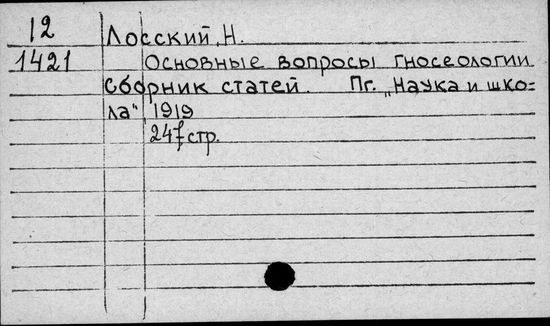 12
Лосский, Н.
1421
Основные вопросы гносеологии
Сборник статей. Пг. „Наука и шко-
ла" 1919
247 стр.